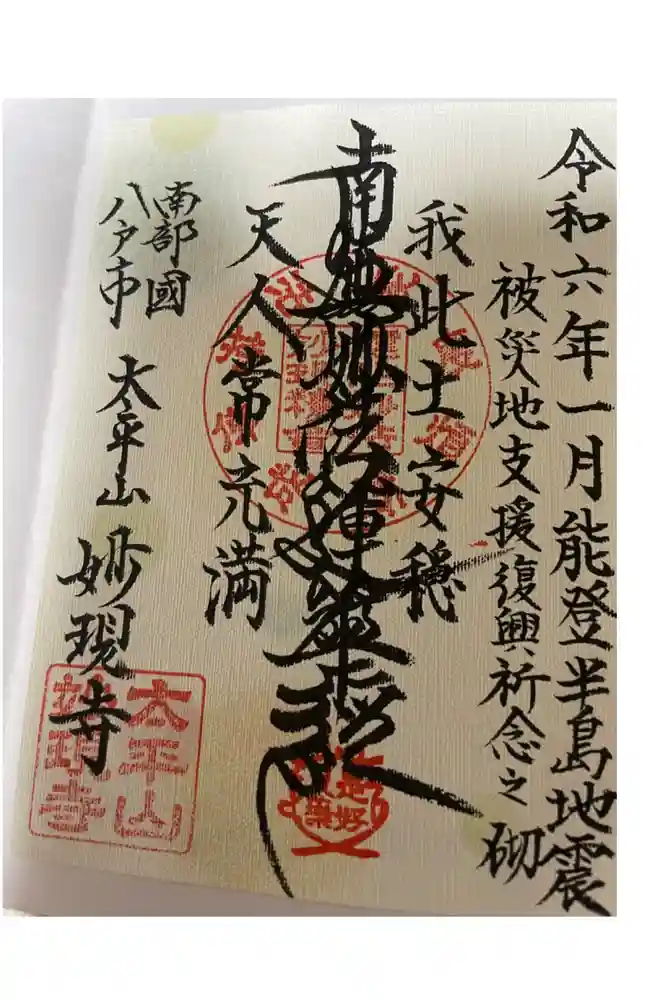 令和六年一月能登半島地震
被災地支援復興祈念之砌
我此土安穏
南無妙法蓮華経
天人常充満
南部國
八戸市
太平山
妙現寺
太平山
妙現寺